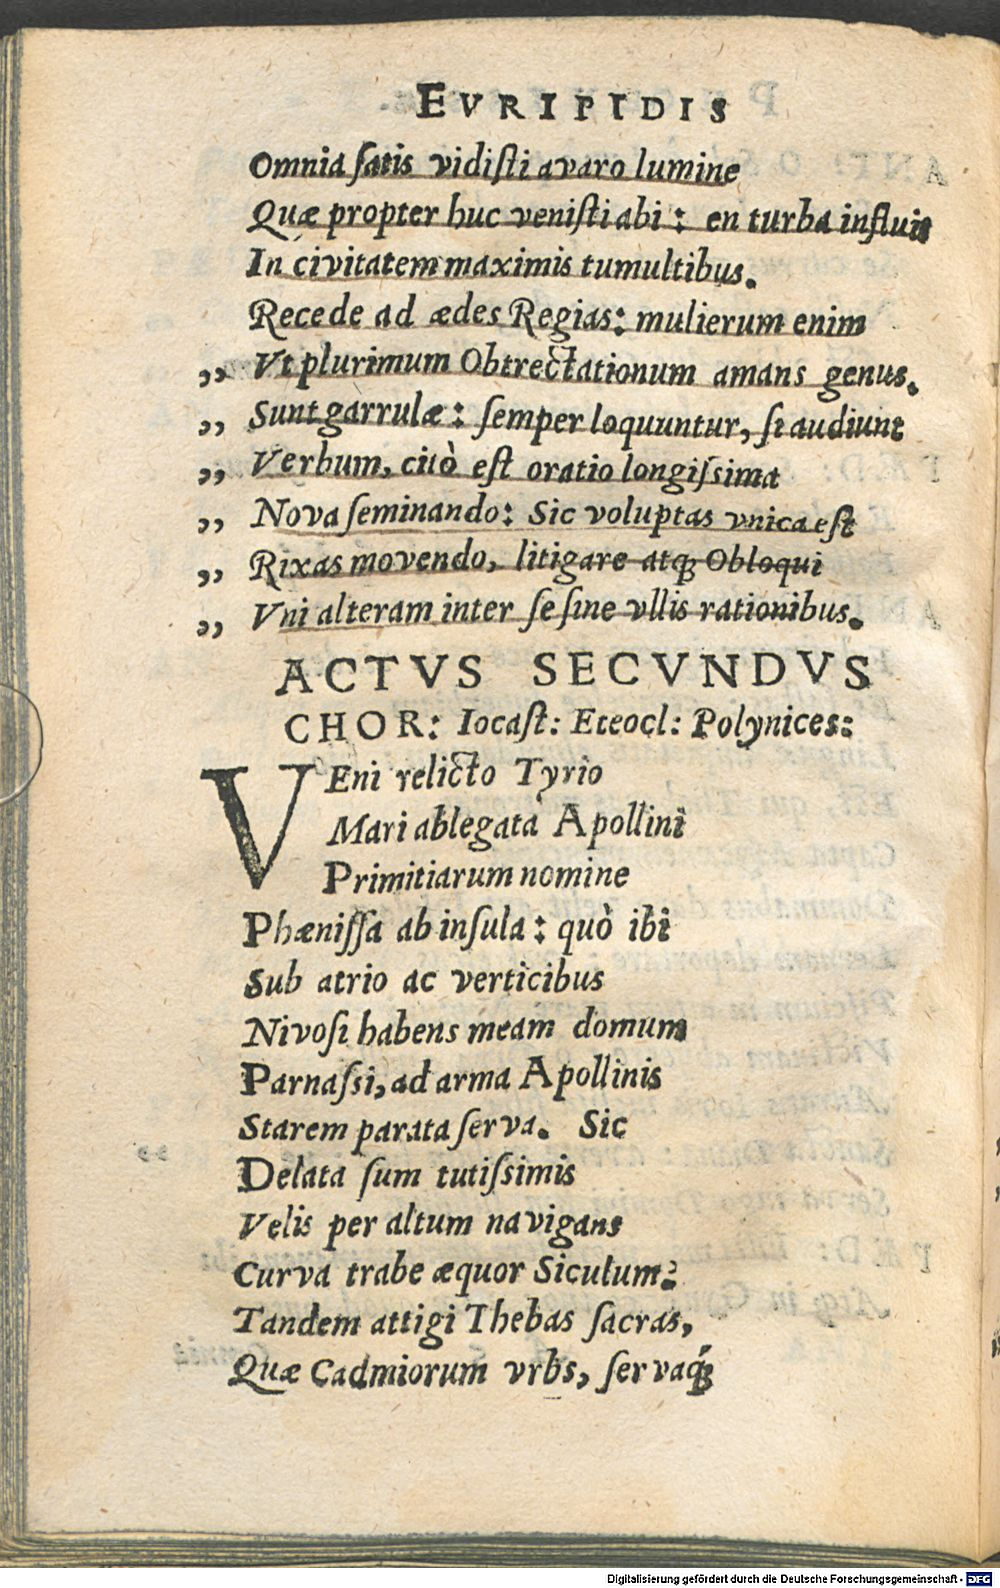 EVRIPIDIS
Omnia ſatis vidiſti avaro lumine
Quæ propter huc veniſti abi: en turba influit
In civitatem maximis tumultibus.
Recede ad ædes Regias: mulierum enim
„ Vt plurimum Obtrectationum amans genus.
„ Sunt garrulæ: ſemper loquuntur, ſi audiunt
„ Verbum, citò eſt oratio longiſsima
„ Nova ſeminando: Sic voluptas vnica eſt
„ Rixas movendo, litigare atq; Obloqui
„ Vni alteram inter ſe ſine vllis rationibus.
ACTVS SECVNDVS
CHOR: Iocaſt: Eteocl: Polynices:
VEni relicto Tyrio
Mari ablegata Apollini
Primitiarum nomine
Phæniſſa ab inſula: quò ibi
Sub atrio ac verticibus
Nivoſi habens meam domum
Parnaſsi, ad arma Apollinis
Starem parata ſerva. Sic
Delata ſum tutiſsimis
Velis per altum navigans
Curva trabe æquor Siculum:
Tandem attigi Thebas ſacras,
Quæ Cadmiorum vrbs, ſervaq́;
Digitalisierung gefördert durch die Deutsche Forschungsgemeinschaft - DFG